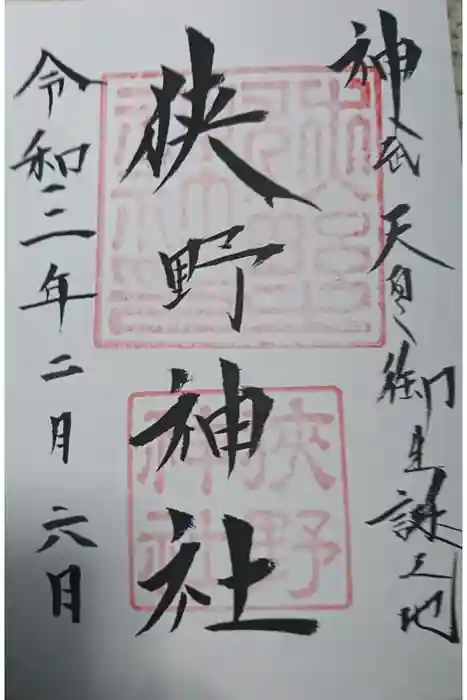 神武天皇御生誕之地
狭野神社
令和三年二月六日
狹野
神社